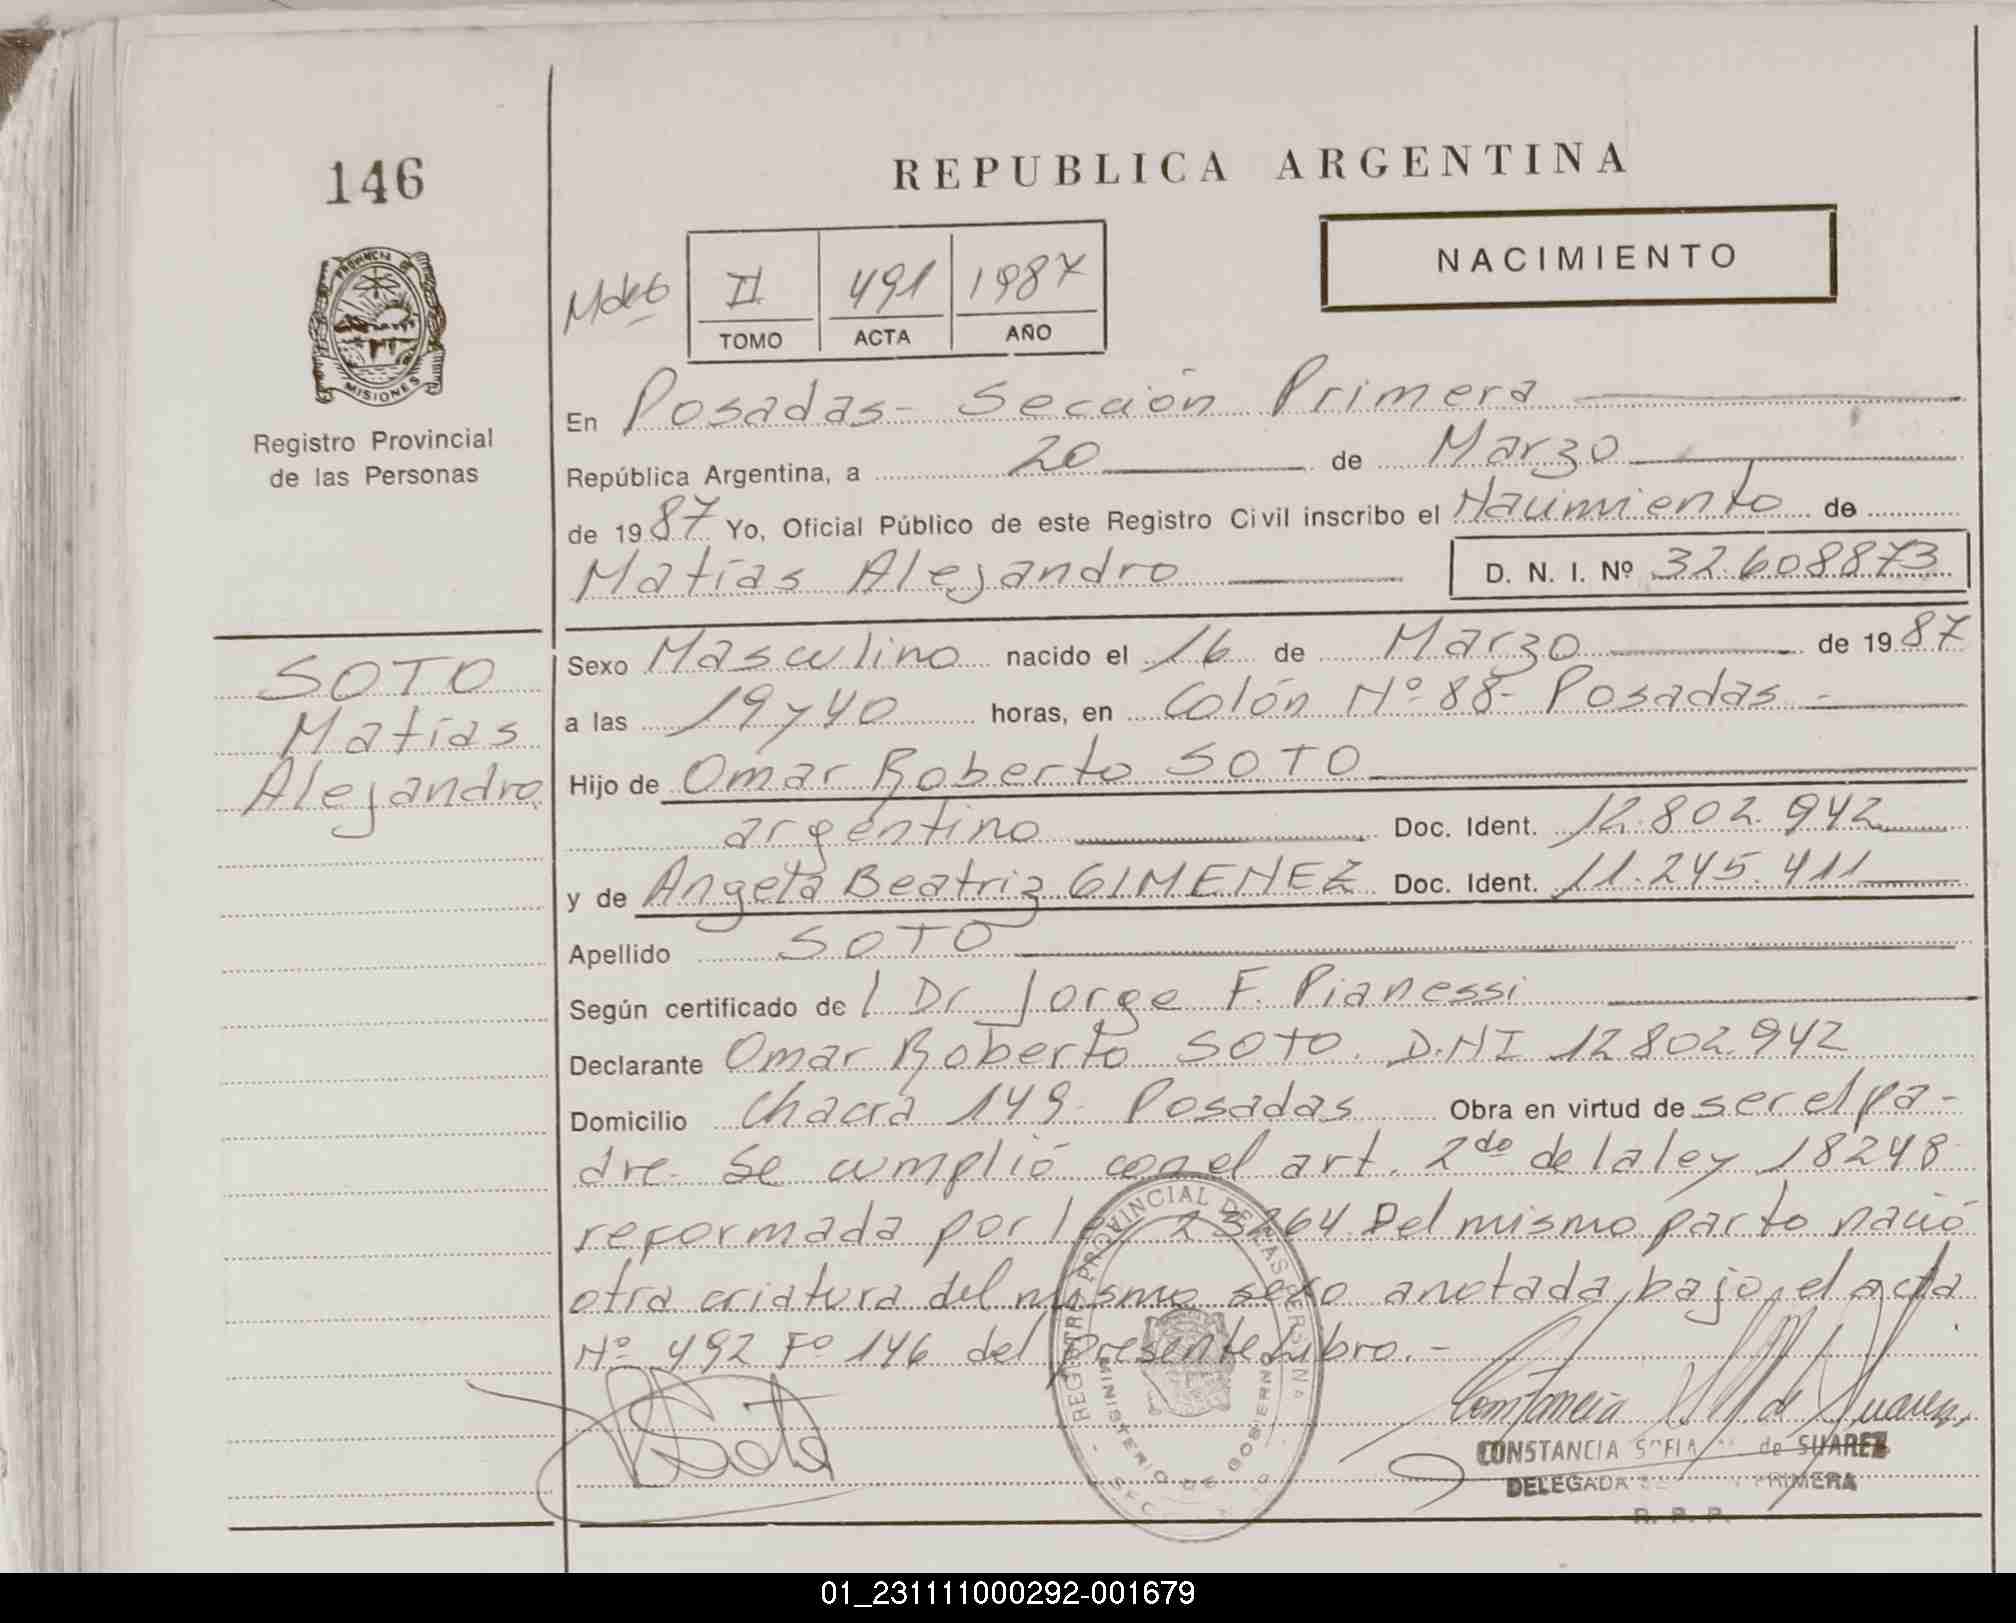 146
REPUBLICA ARGENTINA
NACIMIENTO
II 491 1987
TOMO ACTA AÑO
PROVINCIA DE
MISIONES
Registro Provincial
de las Personas
En Posadas- Sección Primera
República Argentina, a 20 de Marzo
de 1987 Yo, Oficial Público de este Registro Civil inscribo el Nacimiento de
Matías Alejandro D. N. I. Nº 32.608873
SOTO
Matías
Alejandro
Sexo Masculino nacido el 16 de Marzo de 1987
a las 19 y 40 horas, en Colón Nº 88- Posadas -
Hijo de Omar Roberto SOTO
argentino Doc. Ident. 12.802.942
y de Angela Beatriz GIMENEZ Doc. Ident. 11.245.411
Apellido SOTO
Según certificado de l Dr Jorge F. Pianessi
Declarante Omar Roberto SOTO. D.NI 12802.942
Domicilio Chacra 149- Posadas Obra en virtud de ser el pa-
dre- Se cumplió con el art. 2do de la ley 18248
reformada por ley 23264. Del mismo parto nació
otra criatura del mismo sexo anotada bajo el acta
Nº 492 Fº 146 del presente Libro.-
REGISTRO PROVINCIAL DE LAS PERSONAS
MINISTERIO DE GOBIERNO
Soto
Constancia de Suarez
CONSTANCIA SOFIA de SUAREZ
DELEGADA PRIMERA
R. P. P.
01_231111000292-001679